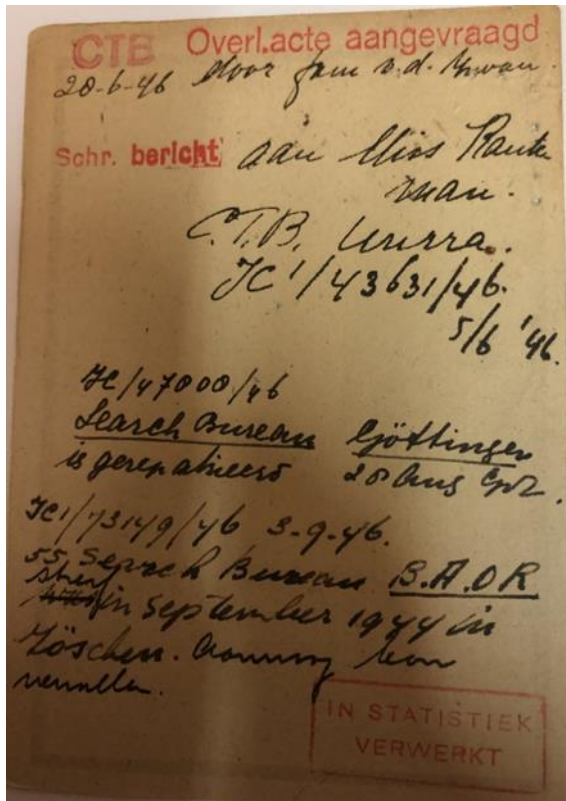 CTB Overl.acte aangevraagd
20-6-46 door fam v.d.
Schr. bericht aan Miss
man.
C.T.B. Unrra.
JC1/43631/46.
5/6 '46.
JC/47000/46
Search Bureau Göttingen
is gerepatrieerd 28 Aug
JC1/73149/46 3-9-46.
55 Search Bureau B.A.O R
stierf
in September 1944 in
vervallen.
IN STATISTIEK
VERWERKT